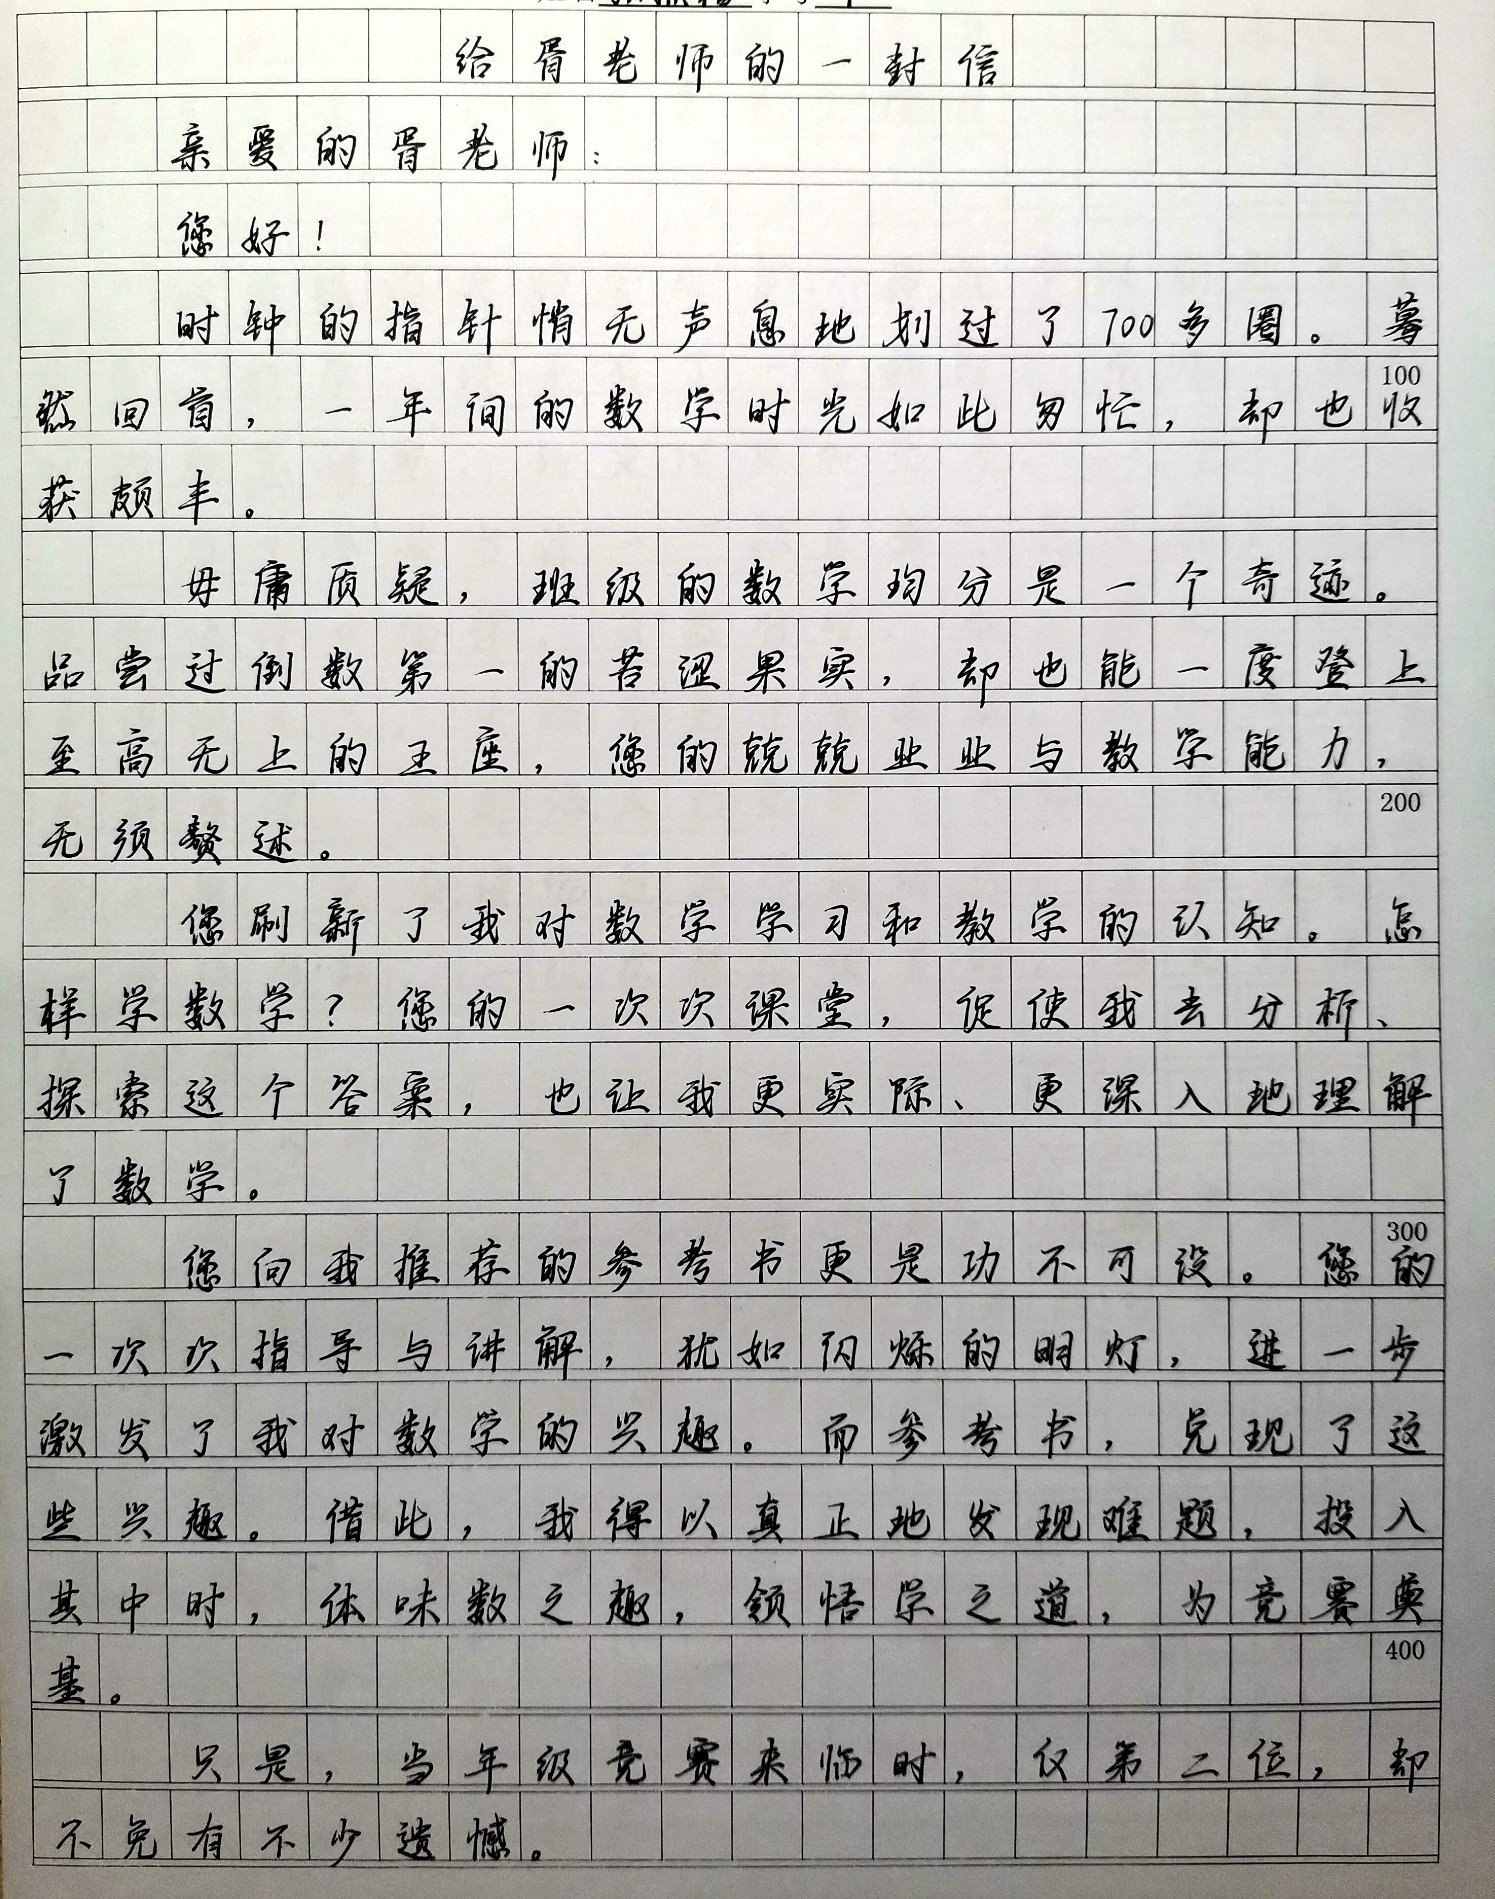 给胥老师的一封信
亲爱的胥老师：
您好！
时钟的指针悄无声息地划过了700多圈。蓦
100
然回首，一年间的数学时光如此匆忙，却也收
获颇丰。
毋庸质疑，班级的数学均分是一个奇迹。
品尝过倒数第一的苦涩果实，却也能一度登上
至高无上的王座，您的兢兢业业与教学能力，
200
无须赘述。
您刷新了我对数学学习和教学的认知。怎
样学数学？您的一次次课堂，促使我去分析、
探索这个答案，也让我更实际、更深入地理解
了数学。
300
您向我推荐的参考书更是功不可没。您的
一次次指导与讲解，犹如闪烁的明灯，进一步
激发了我对数学的兴趣。而参考书，兑现了这
些兴趣。借此，我得以真正地发现难题，投入
其中时，体味数之趣，领悟学之道，为竞赛奠
400
基。
只是，当年级竞赛来临时，仅第二位，却
不免有不少遗憾。